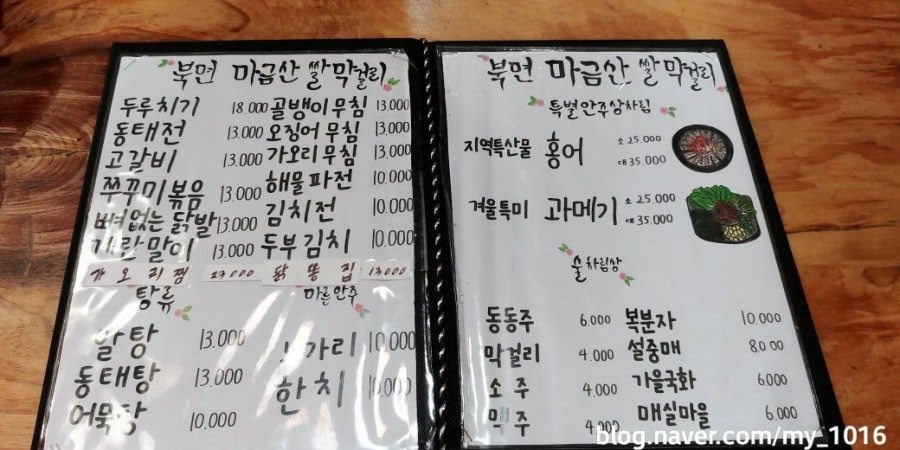 북면 마금산 쌀막걸리
두루치기 18.000 골뱅이무침 13.000
동태전 13.000 오징어무침 13.000
고갈비 13.000 가오리무침 13.000
쭈꾸미볶음 13.000 해물파전 10.000
뼈없는 닭발 13.000 김치전 10.000
계란말이 13.000 두부김치 10.000
가오리찜 23000 닭똥집 13000
탕류
알탕 13.000
동태탕 13.000
어묵탕 10.000
마른안주
노가리 10.000
한치 10.000
북면 마금산 쌀막걸리
특별안주상차림
지역특산물 홍어 소 25.000
대 35.000
겨울특미 과메기 소 25.000
대 35.000
술차림상
동동주 6.000 복분자 10.000
막걸리 4.000 설중매 8.000
소주 4.000 가을국화 6.000
맥주 4.000 매실마을 6.000
blog.naver.com/my_1016